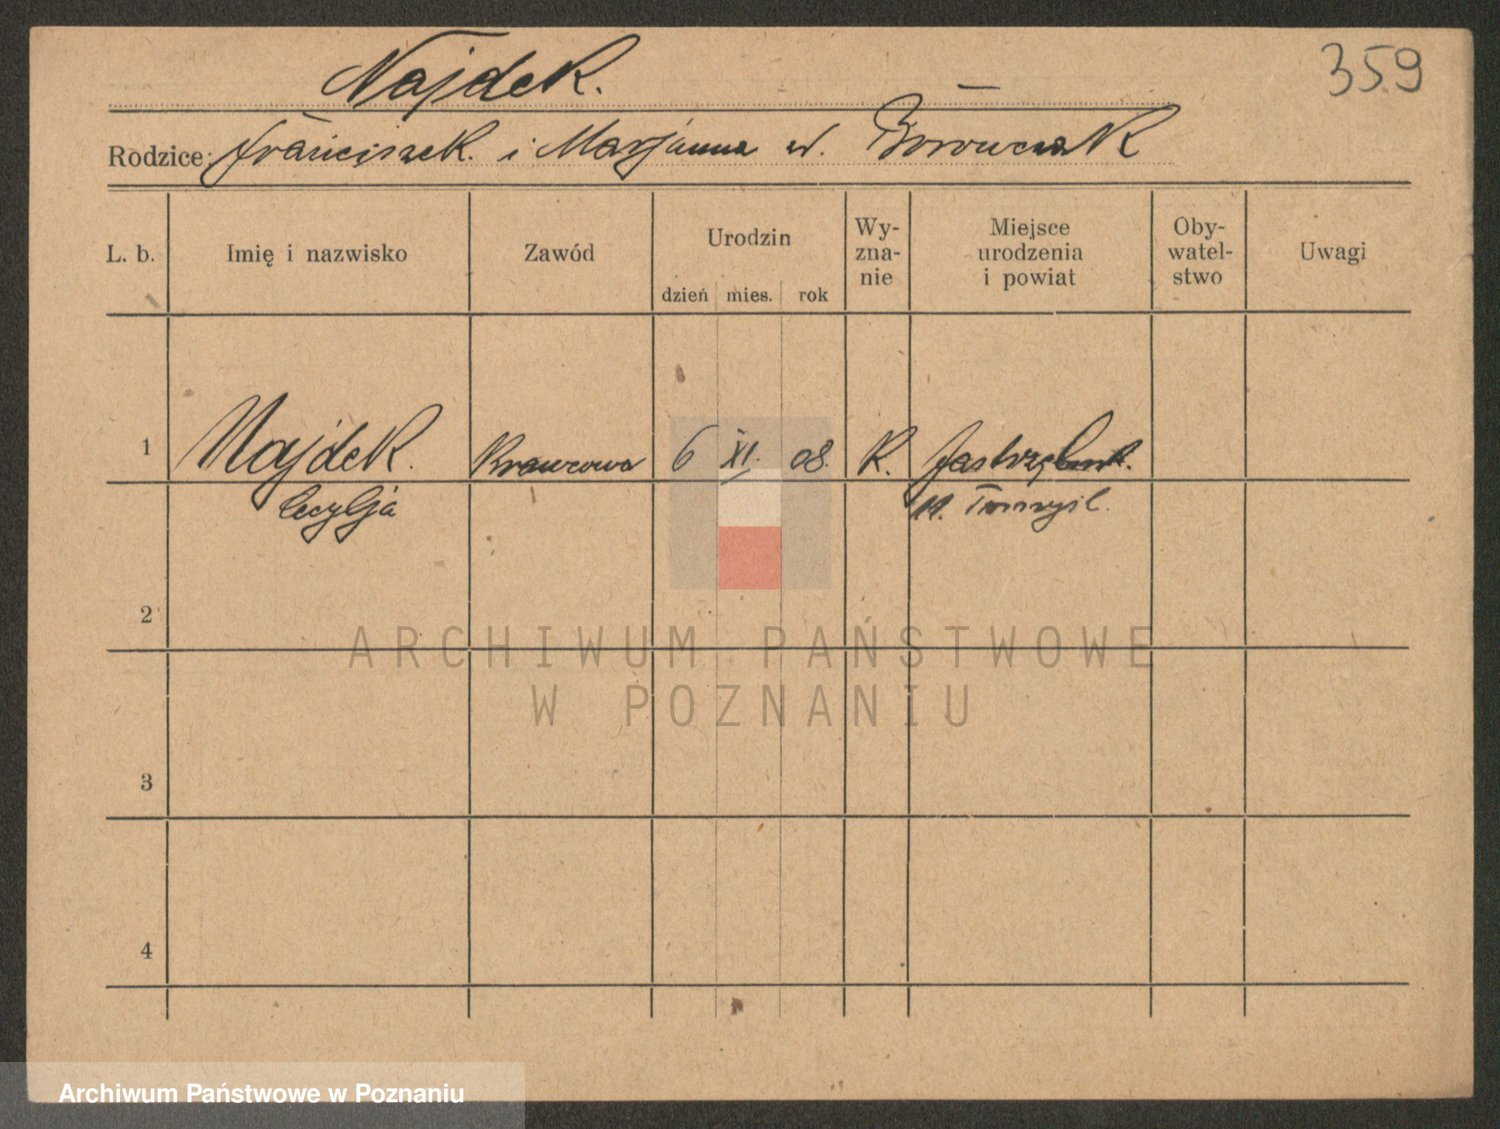 359
Najdek.
Rodzice: Franciszek. i Marjanna ur. Borowczak
L. b. Imię i nazwisko Zawód Urodzin dzień mies. rok Wy-zna-nie Miejsce urodzenia i powiat Oby-watel-stwo Uwagi
1 Najdek. Krawcowa 6 XI. 08. K. Jastrzębsk.
Cecylja N. Tomyśl.
2
ARCHIWUM PAŃSTWOWE
W POZNANIU
3
4
Archiwum Państwowe w Poznaniu